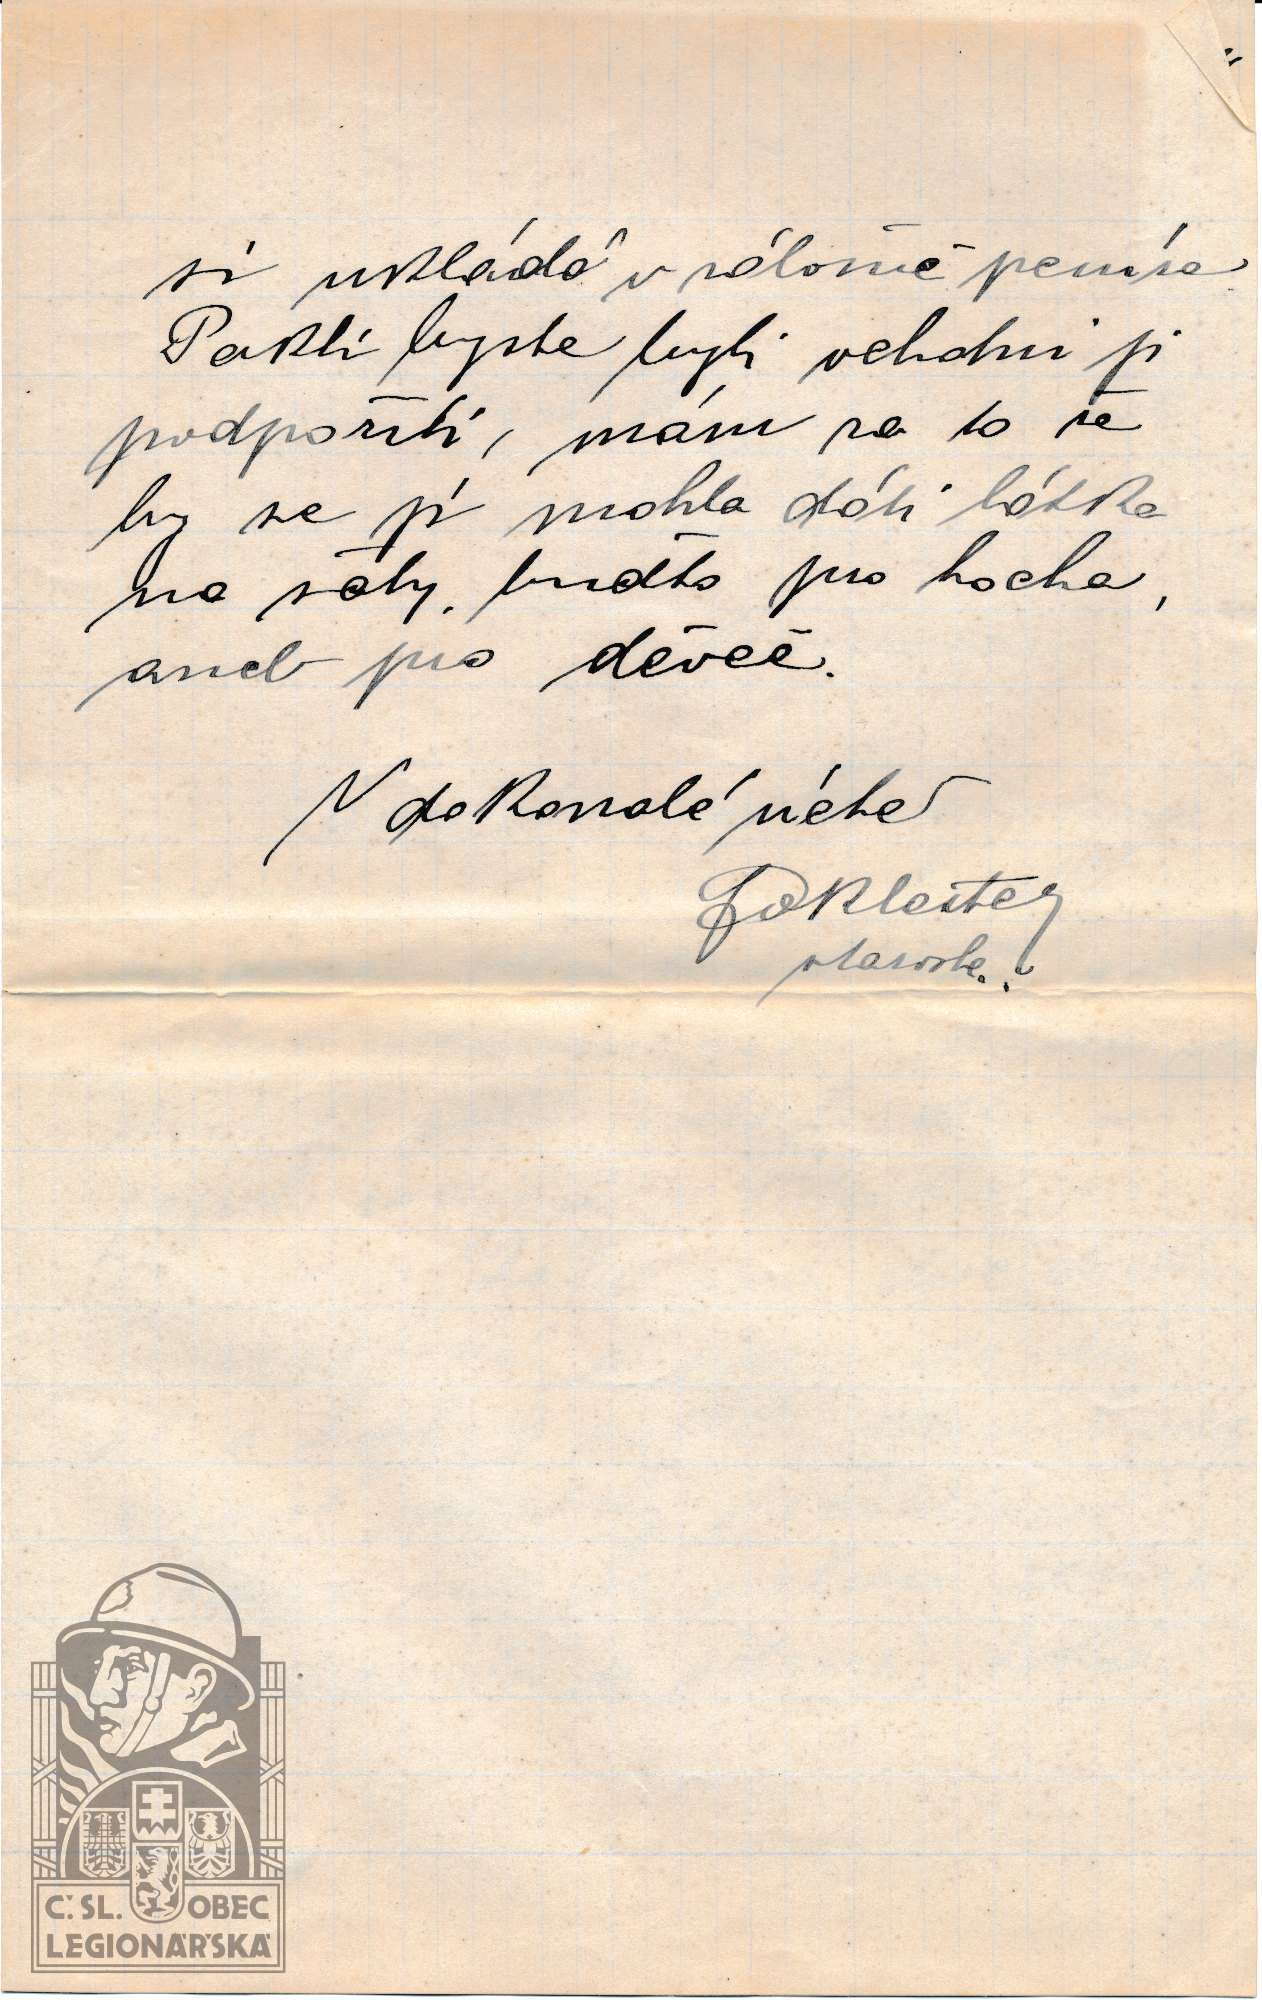 si ukládá v záložně peníze
Paklí byste byli ochotni ji
podpořiti, mám za to že
by se jí mohla dáti látka
na šaty, buďto pro hocha,
aneb pro děvče.
V dokonalé úctě
starosta.
Č. SL. OBEC
LEGIONÁŘSKÁ